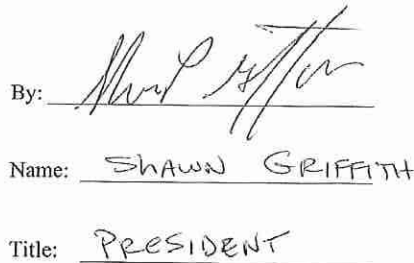 By:
Name: SHAWN GRIFFITH
Title: PRESIDENT